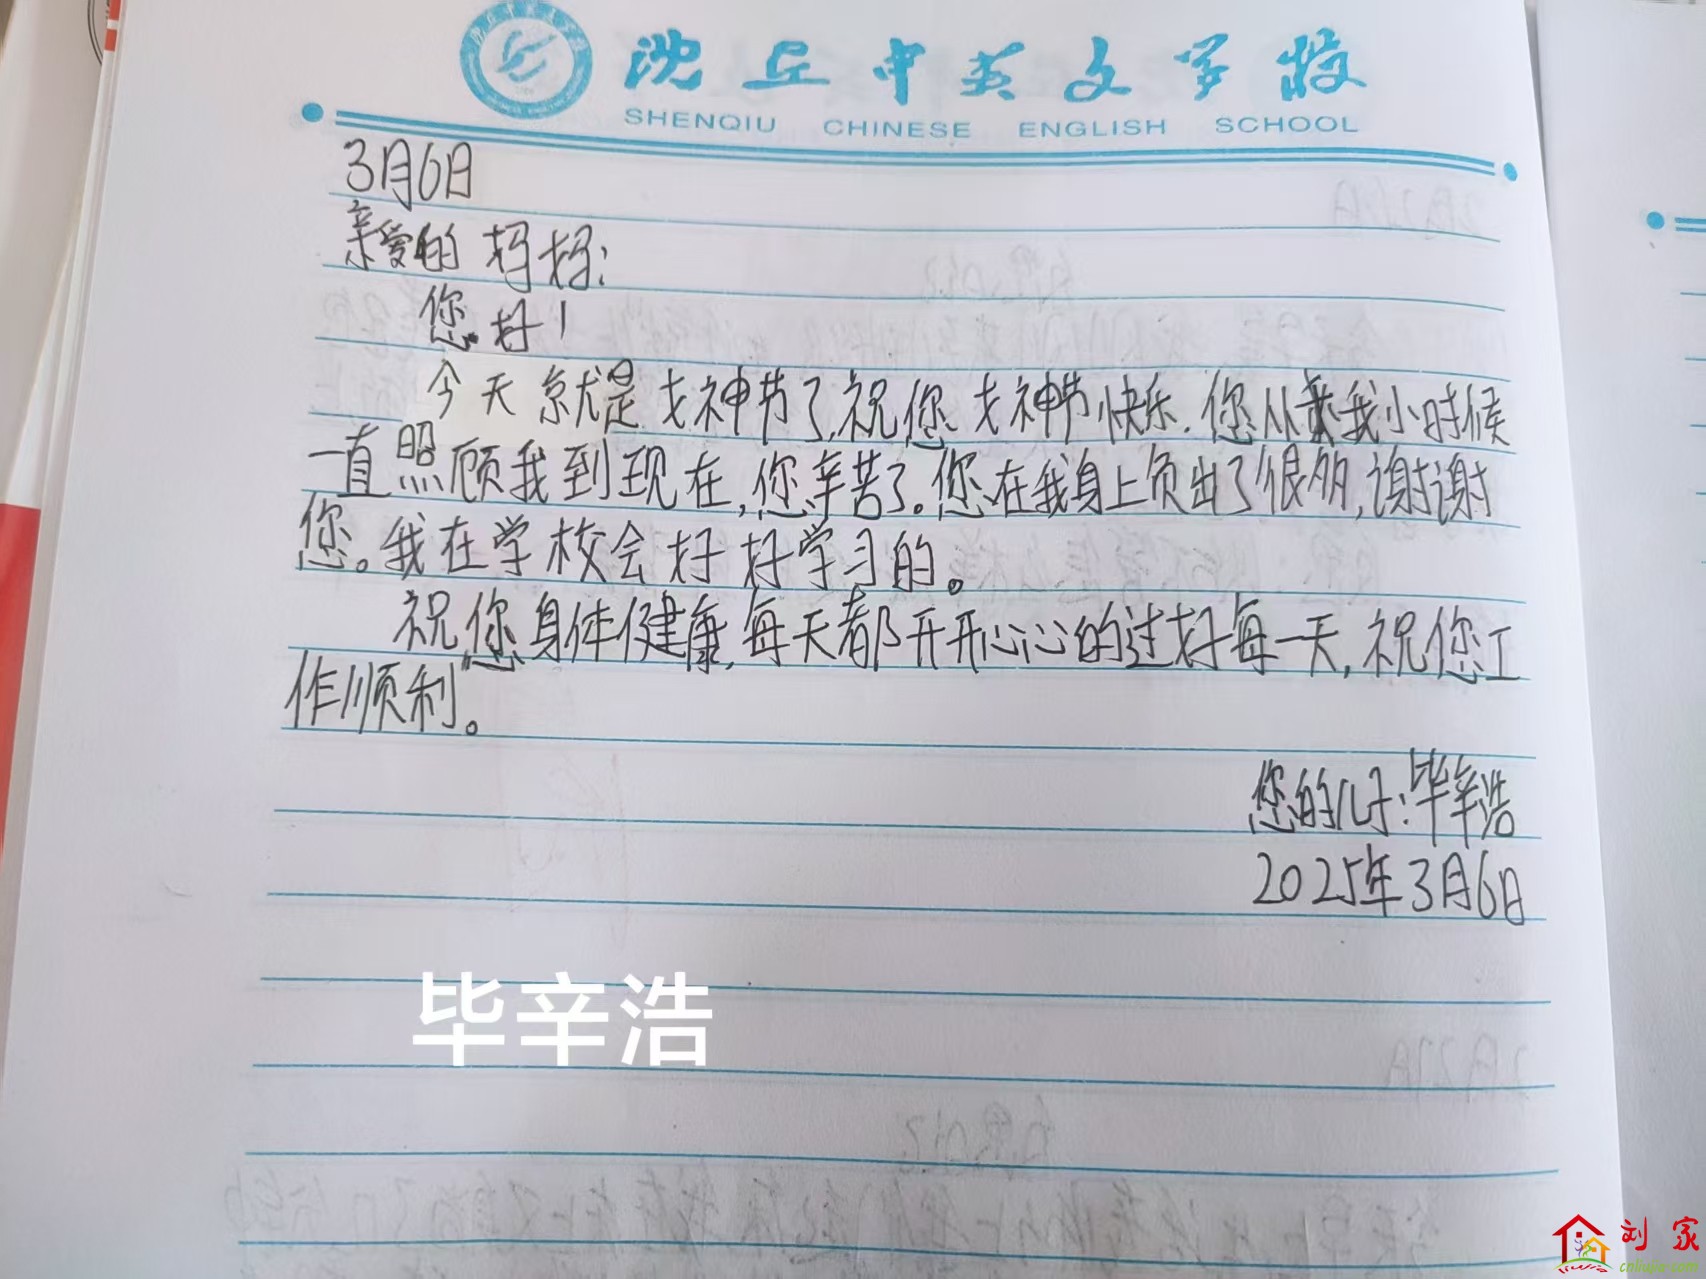 沈丘中英文学校
SHENQIU CHINESE ENGLISH SCHOOL
3月6日
亲爱的妈妈:
您好!
今天就是女神节了,祝您女神节快乐.您从我小时候
一直照顾我到现在,您辛苦了。您在我身上负出了很多,谢谢
您。我在学校会好好学习的。
祝您身体健康,每天都开开心心的过好每一天,祝您工
作顺利。
您的儿子:毕辛浩
2025年3月6日
毕辛浩
刘家
cnliujia.com